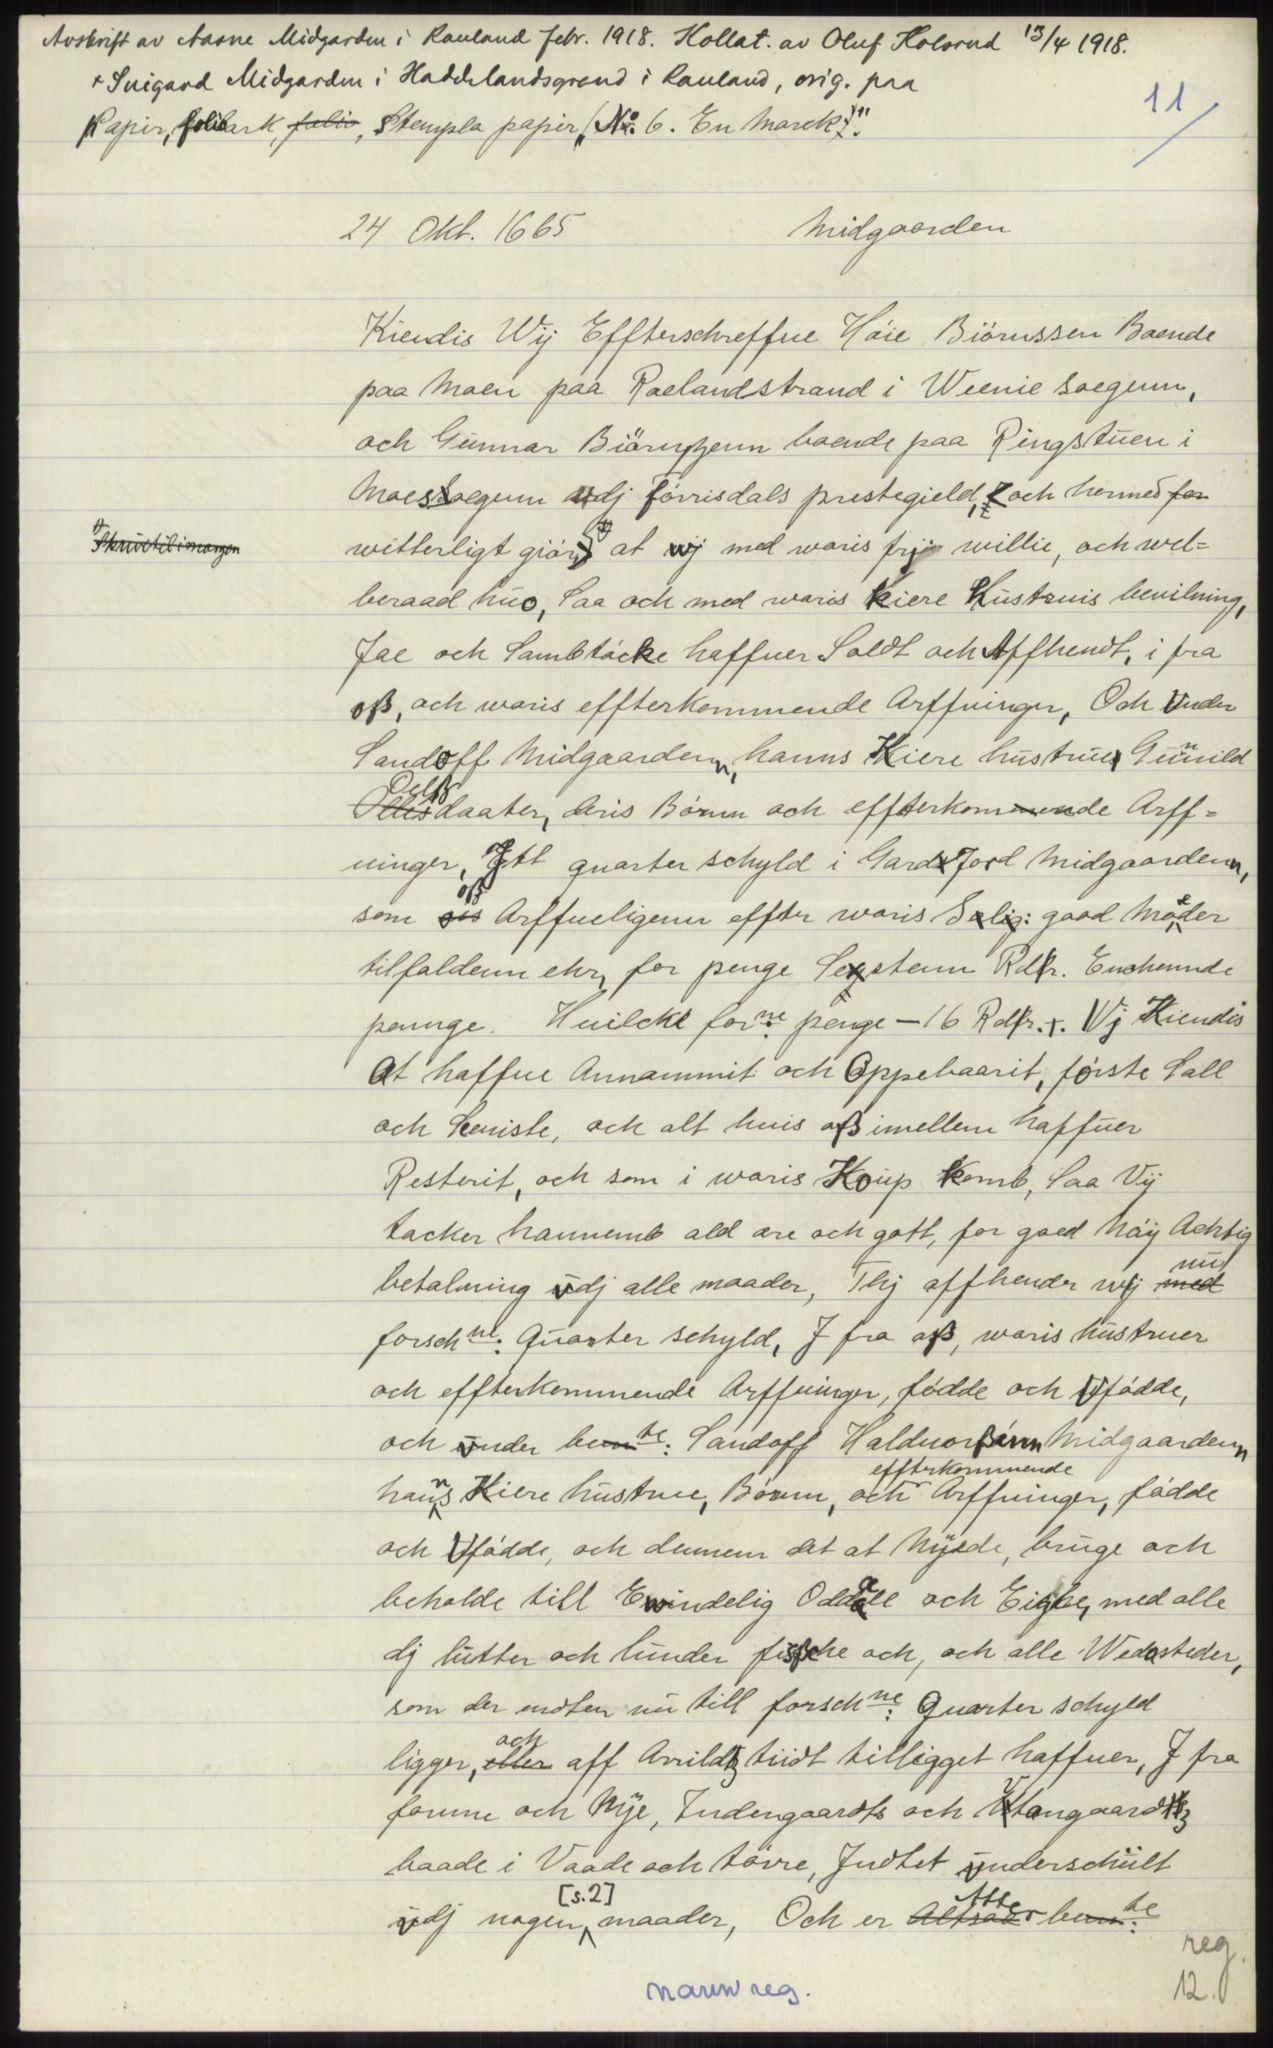 Avskrift av Aasne Midgarden i Rauland febr. 1918. Kollat. av Oluf Kolsrud 13/4 1918.
Snigard Midgarden i Haddelandsgrend i Rauland, orig. paa
Papir, folioark, folio, Stempla papir, "No 6. En Marck".
11
24 Okt. 1665 Midgaarden
Kiendis Wij Effterschreffue Höie Biörnssen Boende
paa Moen paa Roelandstrand i Weenie soegenn,
och Gunnar Biörnßenn boende paa Ringstuen i
Moessoegunn udj Förrisdals prestegield, och hermed for
Skrivetilimargen
witterligt giör, at wj med woris frj willie, och wel=
beraad huo, Saa och med woris Kiere Hustruis beuilning,
Jae och Sambtöcke haffuer Soldt och Affhendt, i fra
oß, och woris effterkommende Arffuinger, Och Vnder
Sandoff Midgaardenn, hanns Kiere hustrue Gunnild
Oelß
Olusdaater, deris Börnn och effterkommende Arff=
uinger, Jtt quarter schyld i Gard Jord Midgaardenn,
oß
som os Arffueligenn effter woris Salig: good Moder
tilfaldenn ehr, for penge Sexstenn Rdlr. Enchennde
pennge. Huilcke forne: penge – 16 Rdlr. +. Vj Kiendis
At haffue Annammit och Oppebaarit, förste Sall
och Seniste, och alt huis oß imellem haffuer
Resterit, och som i woris Koup Komb, Saa Vij
tacker hannemb ald ære och gott, for goed Nöy Achtig
nu
betalning vdj alle maader, Thj affhender wij med
forschne: Quarter schyld, J fra oß, woris hustruer
och effterkommende Arffuinger, födde och Vfödde,
och vnder bemte: Sandoff Halduorßönn Midgaardenn
effterkommende
hanns Kiere hustrue, Börnn, och Arffuinger, födde
och Vfödde, och dennem det at Nyde, bruge och
beholde till Ewindelig Oddall och Eige, med alle
dj lutter och lunder fische och, och alle Wedesteder,
som der endten nu till forschne: Quarter schyld
och
ligger, eller aff Arrildz tiidt tilligget haffuer, J fra
fornne och Nye, Indengaardts och Vtangaardtz
baade i Vaade och törre, Jndtet vnderschiilt
[s.2] Atter
vdj nogen maader, Och er Altsaa bemte:
reg.
12.
navnreg.